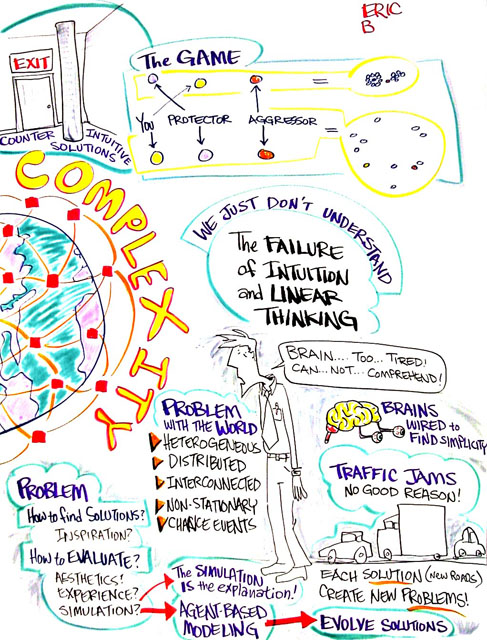 ERIC
B
EXIT
COUNTER
INTUITIVE
SOLUTIONS
The GAME
=
You
PROTECTOR
AGGRESSOR
=
COMPLEXITY
WE JUST DON'T UNDERSTAND
The FAILURE
of INTUITION
and LINEAR
THINKING
BRAIN.... TOO... TIRED!
CAN... NOT... COMPREHEND!
PROBLEM
WITH THE WORLD
HETEROGENEOUS
DISTRIBUTED
INTERCONNECTED
NON-STATIONARY
CHANCE EVENTS
BRAINS
WIRED to
FIND SIMPLICITY
TRAFFIC JAMS
NO GOOD REASON!
EACH SOLUTION (NEW ROADS)
CREATE NEW PROBLEMS!
EVOLVE SOLUTIONS
PROBLEM
How to find SOLUTIONS?
INSPIRATION?
How to EVALUATE?
AESTHETICS!
EXPERIENCE?
SIMULATION?
The SIMULATION
IS the explanation!
AGENT-BASED
MODELING